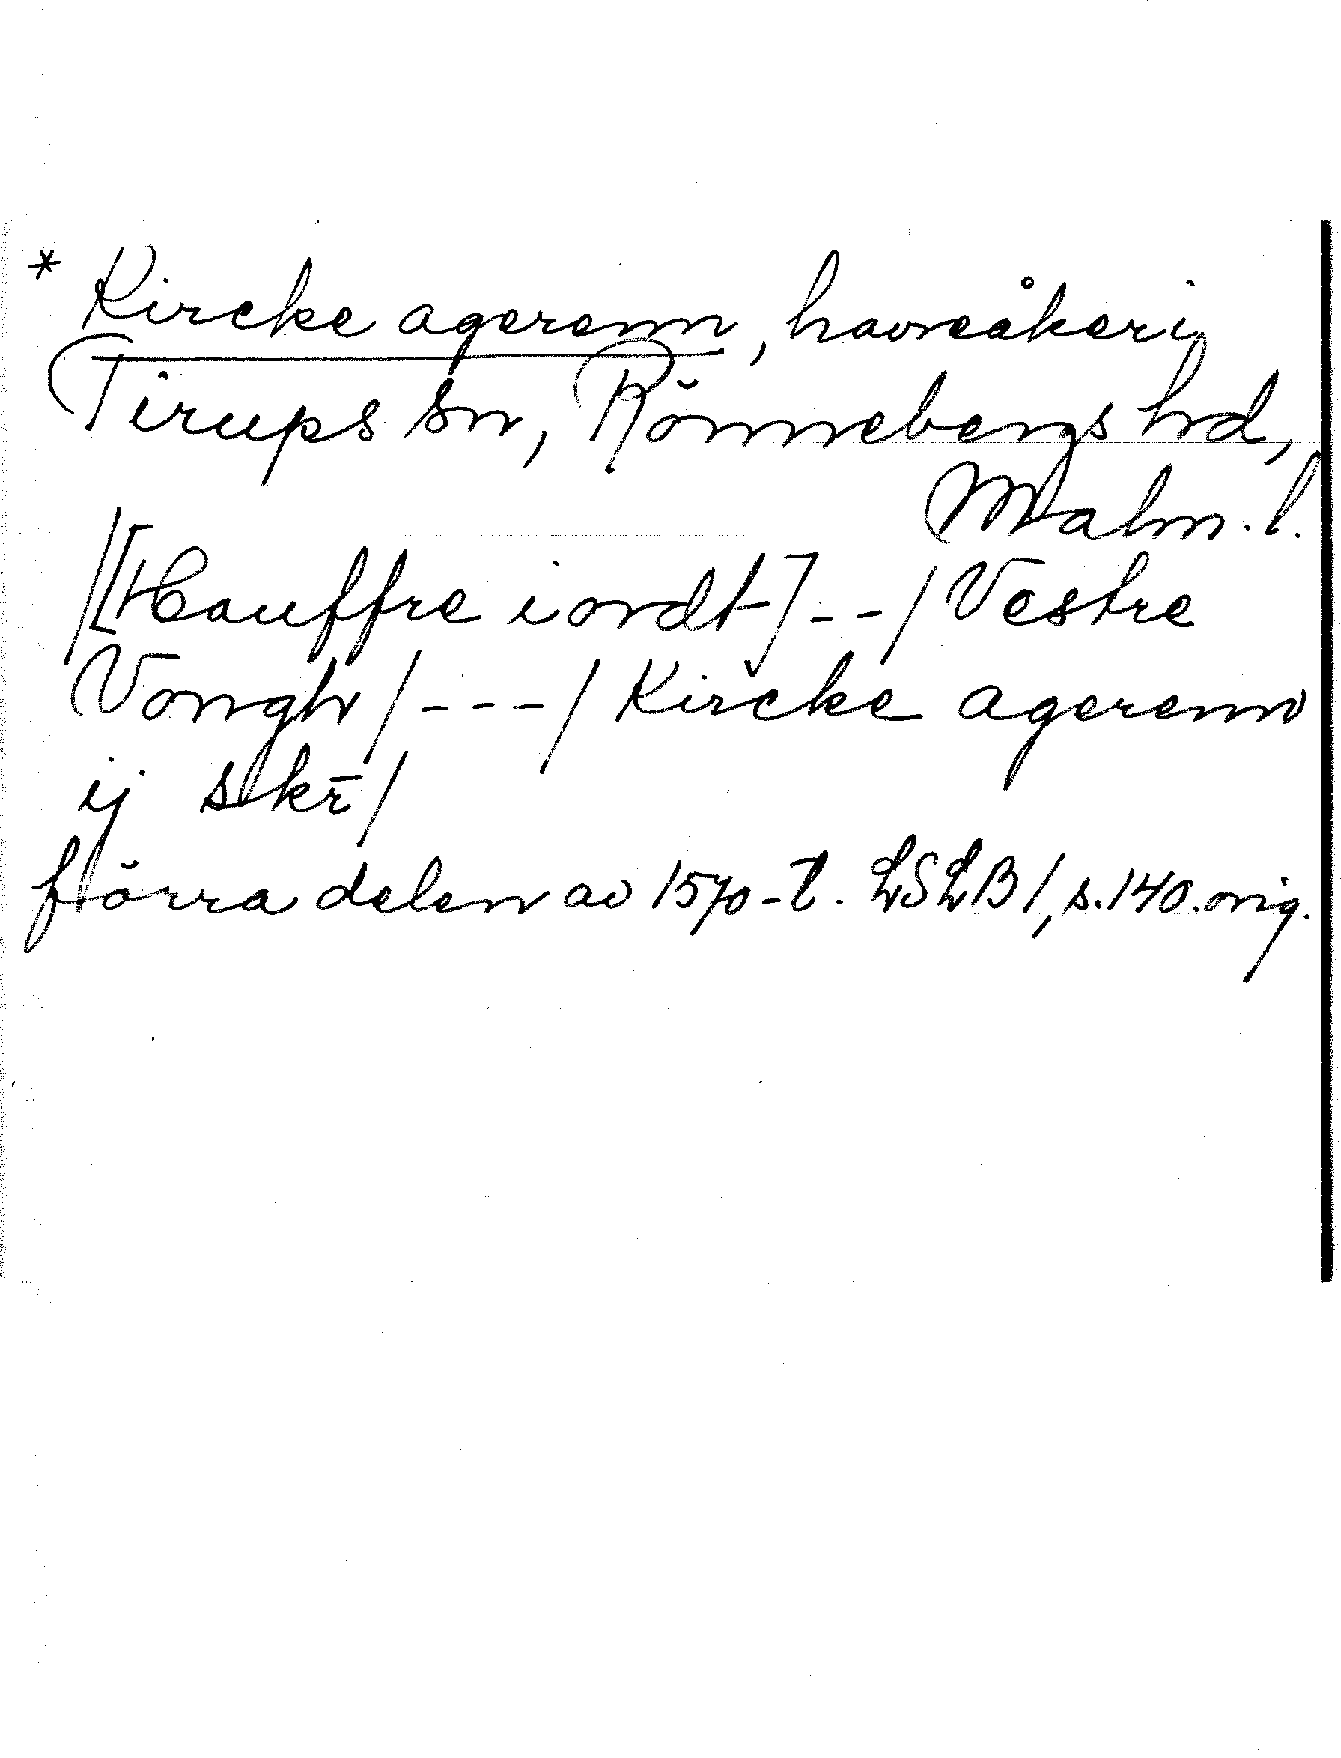 * Kircke agerenn, havreåker i
Tirups sn, Rönnebergs hrd,
Malm. l.
/[Hauffre iordt] - - / Vestre
Vongh / - - - / Kircke agerenn
ij skr̄ /
förra delen av 1570-t. LSLB 1, s. 140. orig.